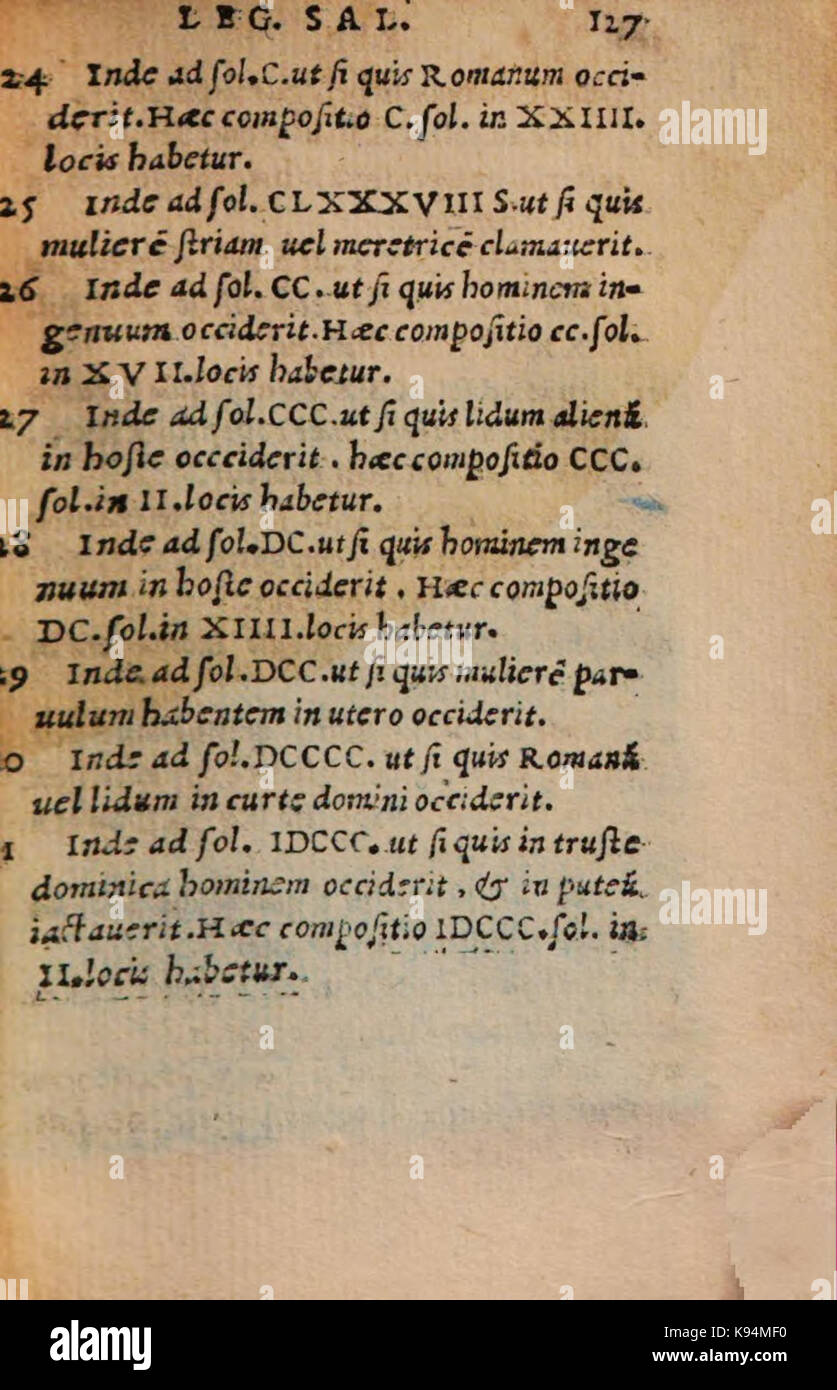 LEG. SAL. 127
24 Inde ad ſol.C.ut ſi quis Romanum occi-
derit.Hæc compoſitio C.ſol. in XXIIII.
locis habetur.
25 Inde ad ſol. CLXXXVIII S.ut ſi quis
mulierē ſtriam uel meretricē clamauerit.
26 Inde ad ſol. CC. ut ſi quis hominem in-
genuum occiderit.Hæc compoſitio cc.ſol.
in XVII.locis habetur.
27 Inde ad ſol.CCC.ut ſi quis lidum alienū
in hoſte occciderit . hæc compoſitio CCC.
ſol.in II.locis habetur.
28 Inde ad ſol.DC.ut ſi quis hominem inge
nuum in hoſte occiderit . Hæc compoſitio
DC.ſol.in XIIII.locis habetur.
29 Inde ad ſol.DCC.ut ſi quis mulierē par-
uulum habentem in utero occiderit.
0 Inde ad ſol.DCCCC. ut ſi quis Romanū
uel lidum in curte domini occiderit.
1 Inde ad ſol. IDCCC. ut ſi quis in truſte
dominica hominem occiderit , & in puteū
iactauerit.Hæc compoſitio IDCCC.ſol. in
II.locis habetur.
alamy
a alamy
Image ID: K94MF0
www.alamy.com